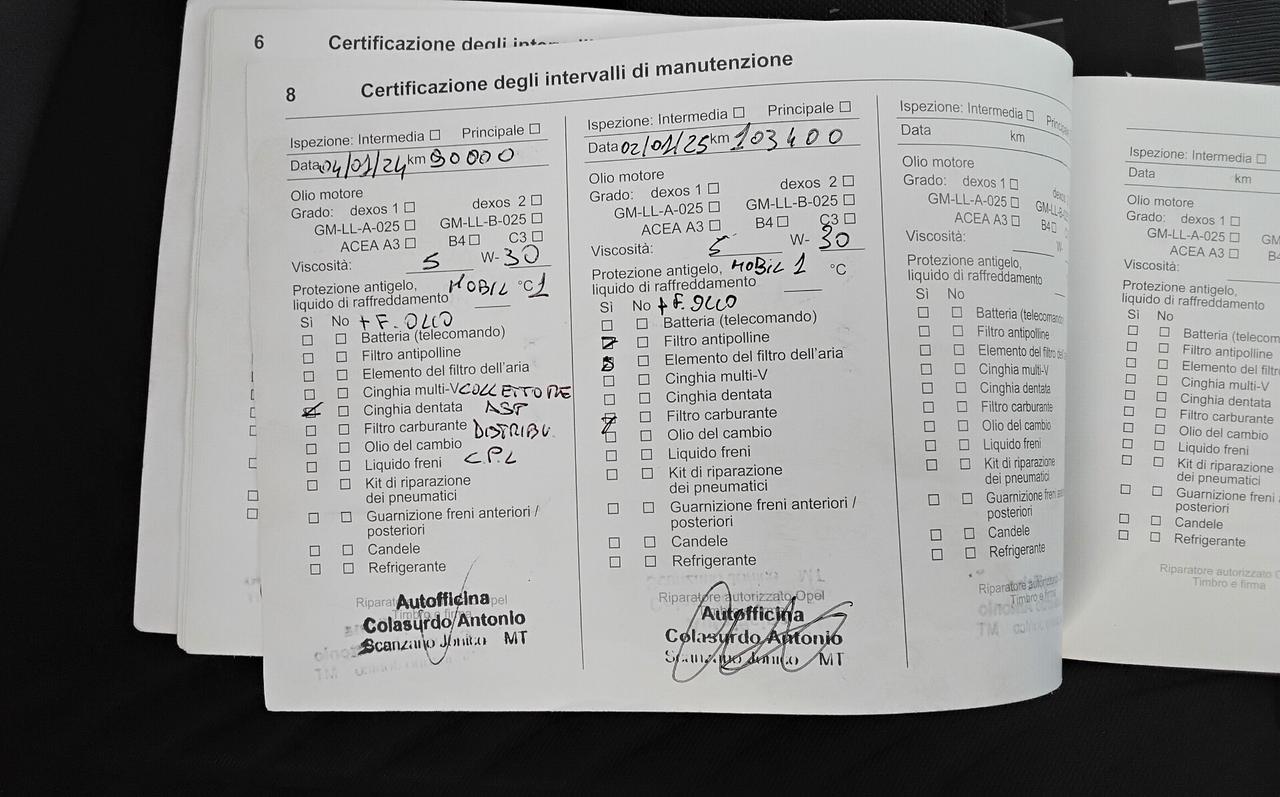 6 Certificazione degli
8 Certificazione degli intervalli di manutenzione
Ispezione: Intermedia ☐ Principale ☐
Data 04/01/24 km 90000
Olio motore
Grado: dexos 1 ☐ dexos 2 ☐
GM-LL-A-025 ☐ GM-LL-B-025 ☐
ACEA A3 ☐ B4 ☐ C3 ☐
Viscosità: 5 W- 30
Protezione antigelo, MOBIL °C 1
liquido di raffreddamento
Sì No + F. OLIO
Batteria (telecomando)
Filtro antipolline
Elemento del filtro dell'aria
Cinghia multi-V COLLETTORE
Cinghia dentata ASP
Filtro carburante DISTRIBU.
Olio del cambio
Liquido freni C.P.L
Kit di riparazione
dei pneumatici
Guarnizione freni anteriori /
posteriori
Candele
Refrigerante
Autofficina
Colasurdo Antonio
Scanzano Jonico MT
Ispezione: Intermedia ☐ Principale ☐
Data 02/01/25 km 103400
Olio motore
Grado: dexos 1 ☐ dexos 2 ☐
GM-LL-A-025 ☐ GM-LL-B-025 ☐
ACEA A3 ☐ B4 ☐ C3 ☐
Viscosità: 5 W- 30
Protezione antigelo, MOBIL 1 °C
liquido di raffreddamento
Sì No + F. OLIO
Batteria (telecomando)
Filtro antipolline
Elemento del filtro dell'aria
Cinghia multi-V
Cinghia dentata
Filtro carburante
Olio del cambio
Liquido freni
Kit di riparazione
dei pneumatici
Guarnizione freni anteriori /
posteriori
Candele
Refrigerante
Riparatore autorizzato Opel
Autofficina
Colasurdo Antonio
Scanzano Jonico MT
Ispezione: Intermedia ☐
Data km
Olio motore
Grado: dexos 1 ☐
GM-LL-A-025 ☐
ACEA A3 ☐ B4 ☐
Viscosità: W-
Protezione antigelo,
liquido di raffreddamento
Sì No
Batteria
Filtro antipolline
Elemento del filtro
Cinghia multi-V
Cinghia dentata
Filtro carburante
Olio del cambio
Liquido freni
Kit di riparazione
dei pneumatici
Guarnizione freni
posteriori
Candele
Refrigerante
Riparatore autorizzato
Timbro e firma
Ispezione: Intermedia ☐
Data km
Olio motore
Grado: dexos 1 ☐
GM-LL-A-025 ☐
ACEA A3 ☐
Viscosità:
Protezione antigelo,
liquido di raffreddamento
Sì No
Batteria
Filtro antipolline
Elemento del
Cinghia multi-V
Cinghia dentata
Filtro carburante
Olio del cambio
Liquido freni
Kit di riparazione
dei pneumatici
Guarnizione freni
posteriori
Candele
Refrigerante
Riparatore autorizzato
Timbro e firma